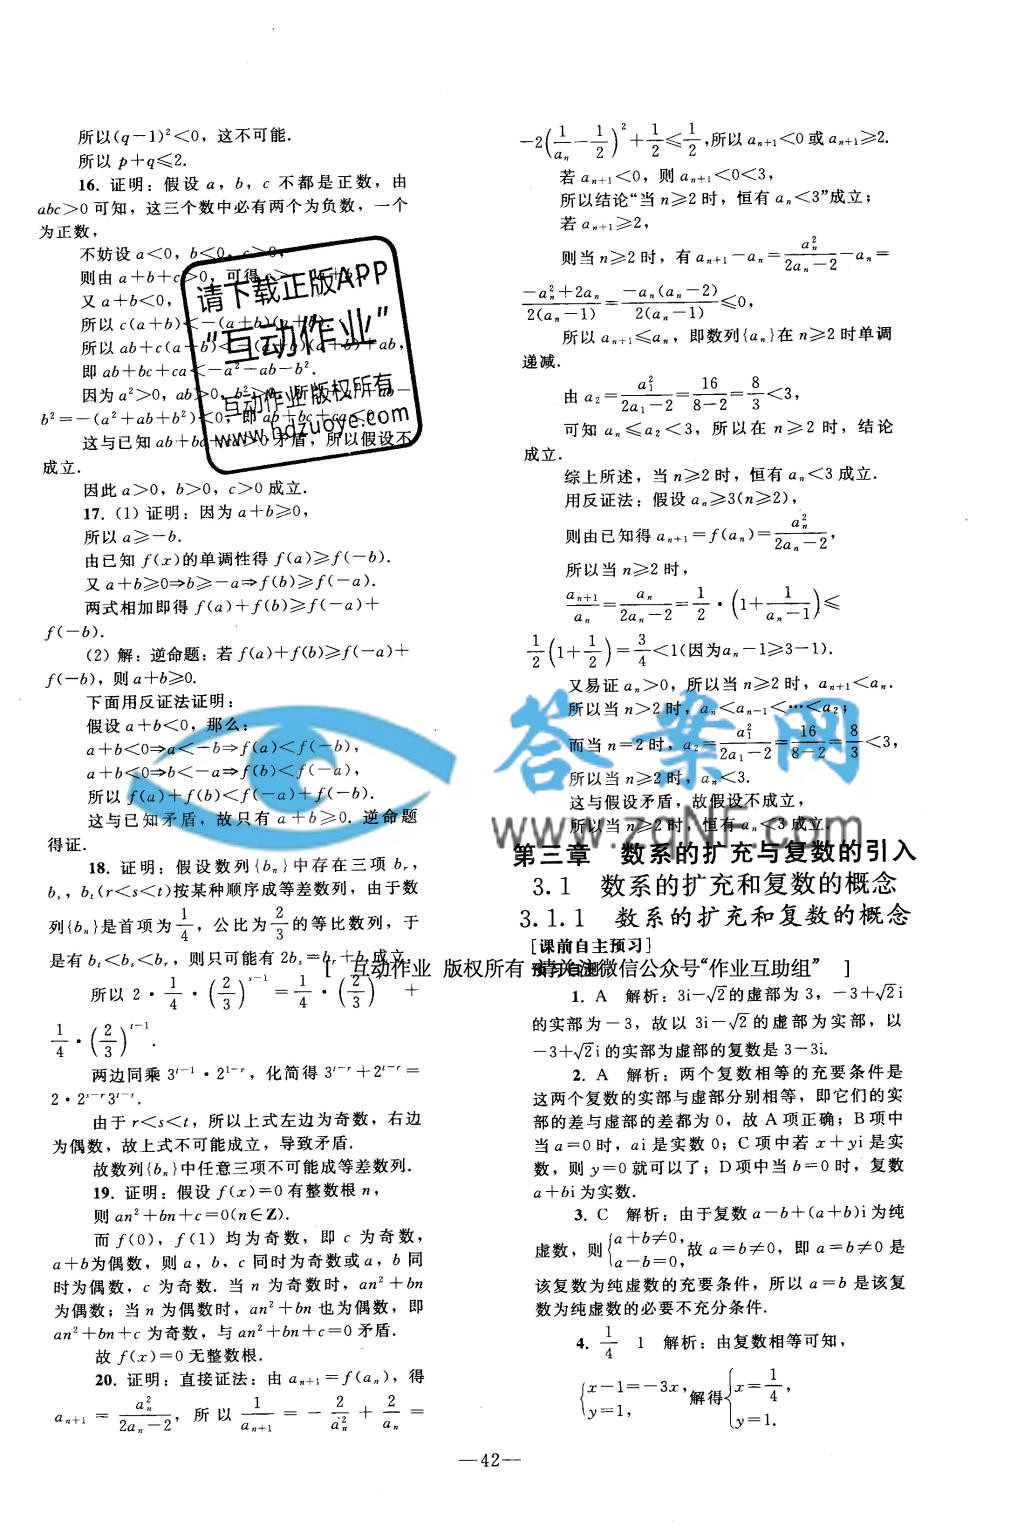 所以(q－1)²＜0，这不可能.
所以 p＋q≤2.
16. 证明：假设 a，b，c 不都是正数，由
abc＞0 可知，这三个数中必有两个为负数，一个
为正数，
不妨设 a＜0，b＜0，c＞0，
则由 a＋b＋c＞0，可得
又 a＋b＜0，
所以 c(a＋b)＜－(a＋b)(a＋b)
所以 ab＋c(a＋b)＜－(a＋b)(a＋b)＋ab，
即 ab＋bc＋ca＜－a²－ab－b².
因为 a²＞0，ab＞0，b²＞0，所以－a²－ab－
b²＝－(a²＋ab＋b²)＜0，即 ab＋bc＋ca＜0，
这与已知 ab＋bc＋ca＞0 矛盾，所以假设不
成立.
因此 a＞0，b＞0，c＞0 成立.
17. (1) 证明：因为 a＋b≥0，
所以 a≥－b.
由已知 f(x)的单调性得 f(a)≥f(－b).
又 a＋b≥0⇒b≥－a⇒f(b)≥f(－a).
两式相加即得 f(a)＋f(b)≥f(－a)＋
f(－b).
(2) 解：逆命题：若 f(a)＋f(b)≥f(－a)＋
f(－b)，则 a＋b≥0.
下面用反证法证明：
假设 a＋b＜0，那么：
a＋b＜0⇒a＜－b⇒f(a)＜f(－b)，
a＋b＜0⇒b＜－a⇒f(b)＜f(－a)，
所以 f(a)＋f(b)＜f(－a)＋f(－b).
这与已知矛盾，故只有 a＋b≥0. 逆命题
得证.
18. 证明：假设数列{bₙ}中存在三项 bᵣ，
bₛ，bₜ(r＜s＜t)按某种顺序成等差数列，由于数
列{bₙ}是首项为 1/4，公比为 2/3 的等比数列，于
是有 bₜ＜bₛ＜bᵣ，则只可能有 2bₛ＝bᵣ＋bₜ 成立.
所以 2·1/4·(2/3)^(s－1)＝1/4·(2/3)^(r－1)＋
1/4·(2/3)^(t－1).
两边同乘 3^(t－1)·2^(1－r)，化简得 3^(t－r)＋2^(t－r)＝
2·2^(s－r)3^(t－s).
由于 r＜s＜t，所以上式左边为奇数，右边
为偶数，故上式不可能成立，导致矛盾.
故数列{bₙ}中任意三项不可能成等差数列.
19. 证明：假设 f(x)＝0 有整数根 n，
则 an²＋bn＋c＝0(n∈Z).
而 f(0)，f(1) 均为奇数，即 c 为奇数，
a＋b 为偶数，则 a，b，c 同时为奇数或 a，b 同
时为偶数，c 为奇数. 当 n 为奇数时，an²＋bn
为偶数；当 n 为偶数时，an²＋bn 也为偶数，即
an²＋bn＋c 为奇数，与 an²＋bn＋c＝0 矛盾.
故 f(x)＝0 无整数根.
20. 证明：直接证法：由 aₙ₊₁＝f(aₙ)，得
aₙ₊₁＝aₙ²/(2aₙ－2)，所以 1/aₙ₊₁＝－2/aₙ²＋2/aₙ＝
－2(1/aₙ－1/2)²＋1/2≤1/2，所以 aₙ₊₁＜0 或 aₙ₊₁≥2.
若 aₙ₊₁＜0，则 aₙ₊₁＜0＜3，
所以结论“当 n≥2 时，恒有 aₙ＜3”成立；
若 aₙ₊₁≥2，
则当 n≥2 时，有 aₙ₊₁－aₙ＝aₙ²/(2aₙ－2)－aₙ＝
(－aₙ²＋2aₙ)/2(aₙ－1)＝－aₙ(aₙ－2)/2(aₙ－1)≤0，
所以 aₙ₊₁≤aₙ，即数列{aₙ}在 n≥2 时单调
递减.
由 a₂＝a₁²/(2a₁－2)＝16/(8－2)＝8/3＜3，
可知 aₙ≤a₂＜3，所以在 n≥2 时，结论
成立.
综上所述，当 n≥2 时，恒有 aₙ＜3 成立.
用反证法：假设 aₙ≥3(n≥2)，
则由已知得 aₙ₊₁＝f(aₙ)＝aₙ²/(2aₙ－2)，
所以当 n≥2 时，
aₙ₊₁/aₙ＝aₙ/(2aₙ－2)＝1/2·(1＋1/(aₙ－1))≤
1/2(1＋1/2)＝3/4＜1(因为 aₙ－1≥3－1).
又易证 aₙ＞0，所以当 n≥2 时，aₙ₊₁＜aₙ.
所以当 n＞2 时，aₙ＜aₙ₋₁＜…＜a₂；
而当 n＝2 时，a₂＝a₁²/(2a₁－2)＝16/(8－2)＝8/3＜3，
所以当 n≥2 时，aₙ＜3.
这与假设矛盾，故假设不成立，
所以当 n≥2 时，恒有 aₙ＜3 成立.
第三章 数系的扩充与复数的引入
3.1 数系的扩充和复数的概念
3.1.1 数系的扩充和复数的概念
[课前自主预习]
预习自测
1. A 解析：3i－√2的虚部为 3，－3＋√2i
的实部为－3，故以 3i－√2的虚部为实部，以
－3＋√2i 的实部为虚部的复数是 3－3i.
2. A 解析：两个复数相等的充要条件是
这两个复数的实部与虚部分别相等，即它们的实
部的差与虚部的差都为 0，故 A 项正确；B 项中
当 a＝0 时，ai 是实数 0；C 项中若 x＋yi 是实
数，则 y＝0 就可以了；D 项中当 b＝0 时，复数
a＋bi 为实数.
3. C 解析：由于复数 a－b＋(a＋b)i 为纯
虚数，则{a＋b≠0，a－b＝0，故 a＝b≠0，即 a＝b≠0 是
该复数为纯虚数的充要条件，所以 a＝b 是该复
数为纯虚数的必要不充分条件.
4. 1/4 1 解析：由复数相等可知，
{x－1＝－3x，y＝1，解得{x＝1/4，y＝1.
—42—
请下载正版APP
“互动作业”
互动作业版权所有
www.hdzuoye.com
答案网
www.zqnf.com
[ 互动作业 版权所有 请关注微信公众号“作业互助组” ]